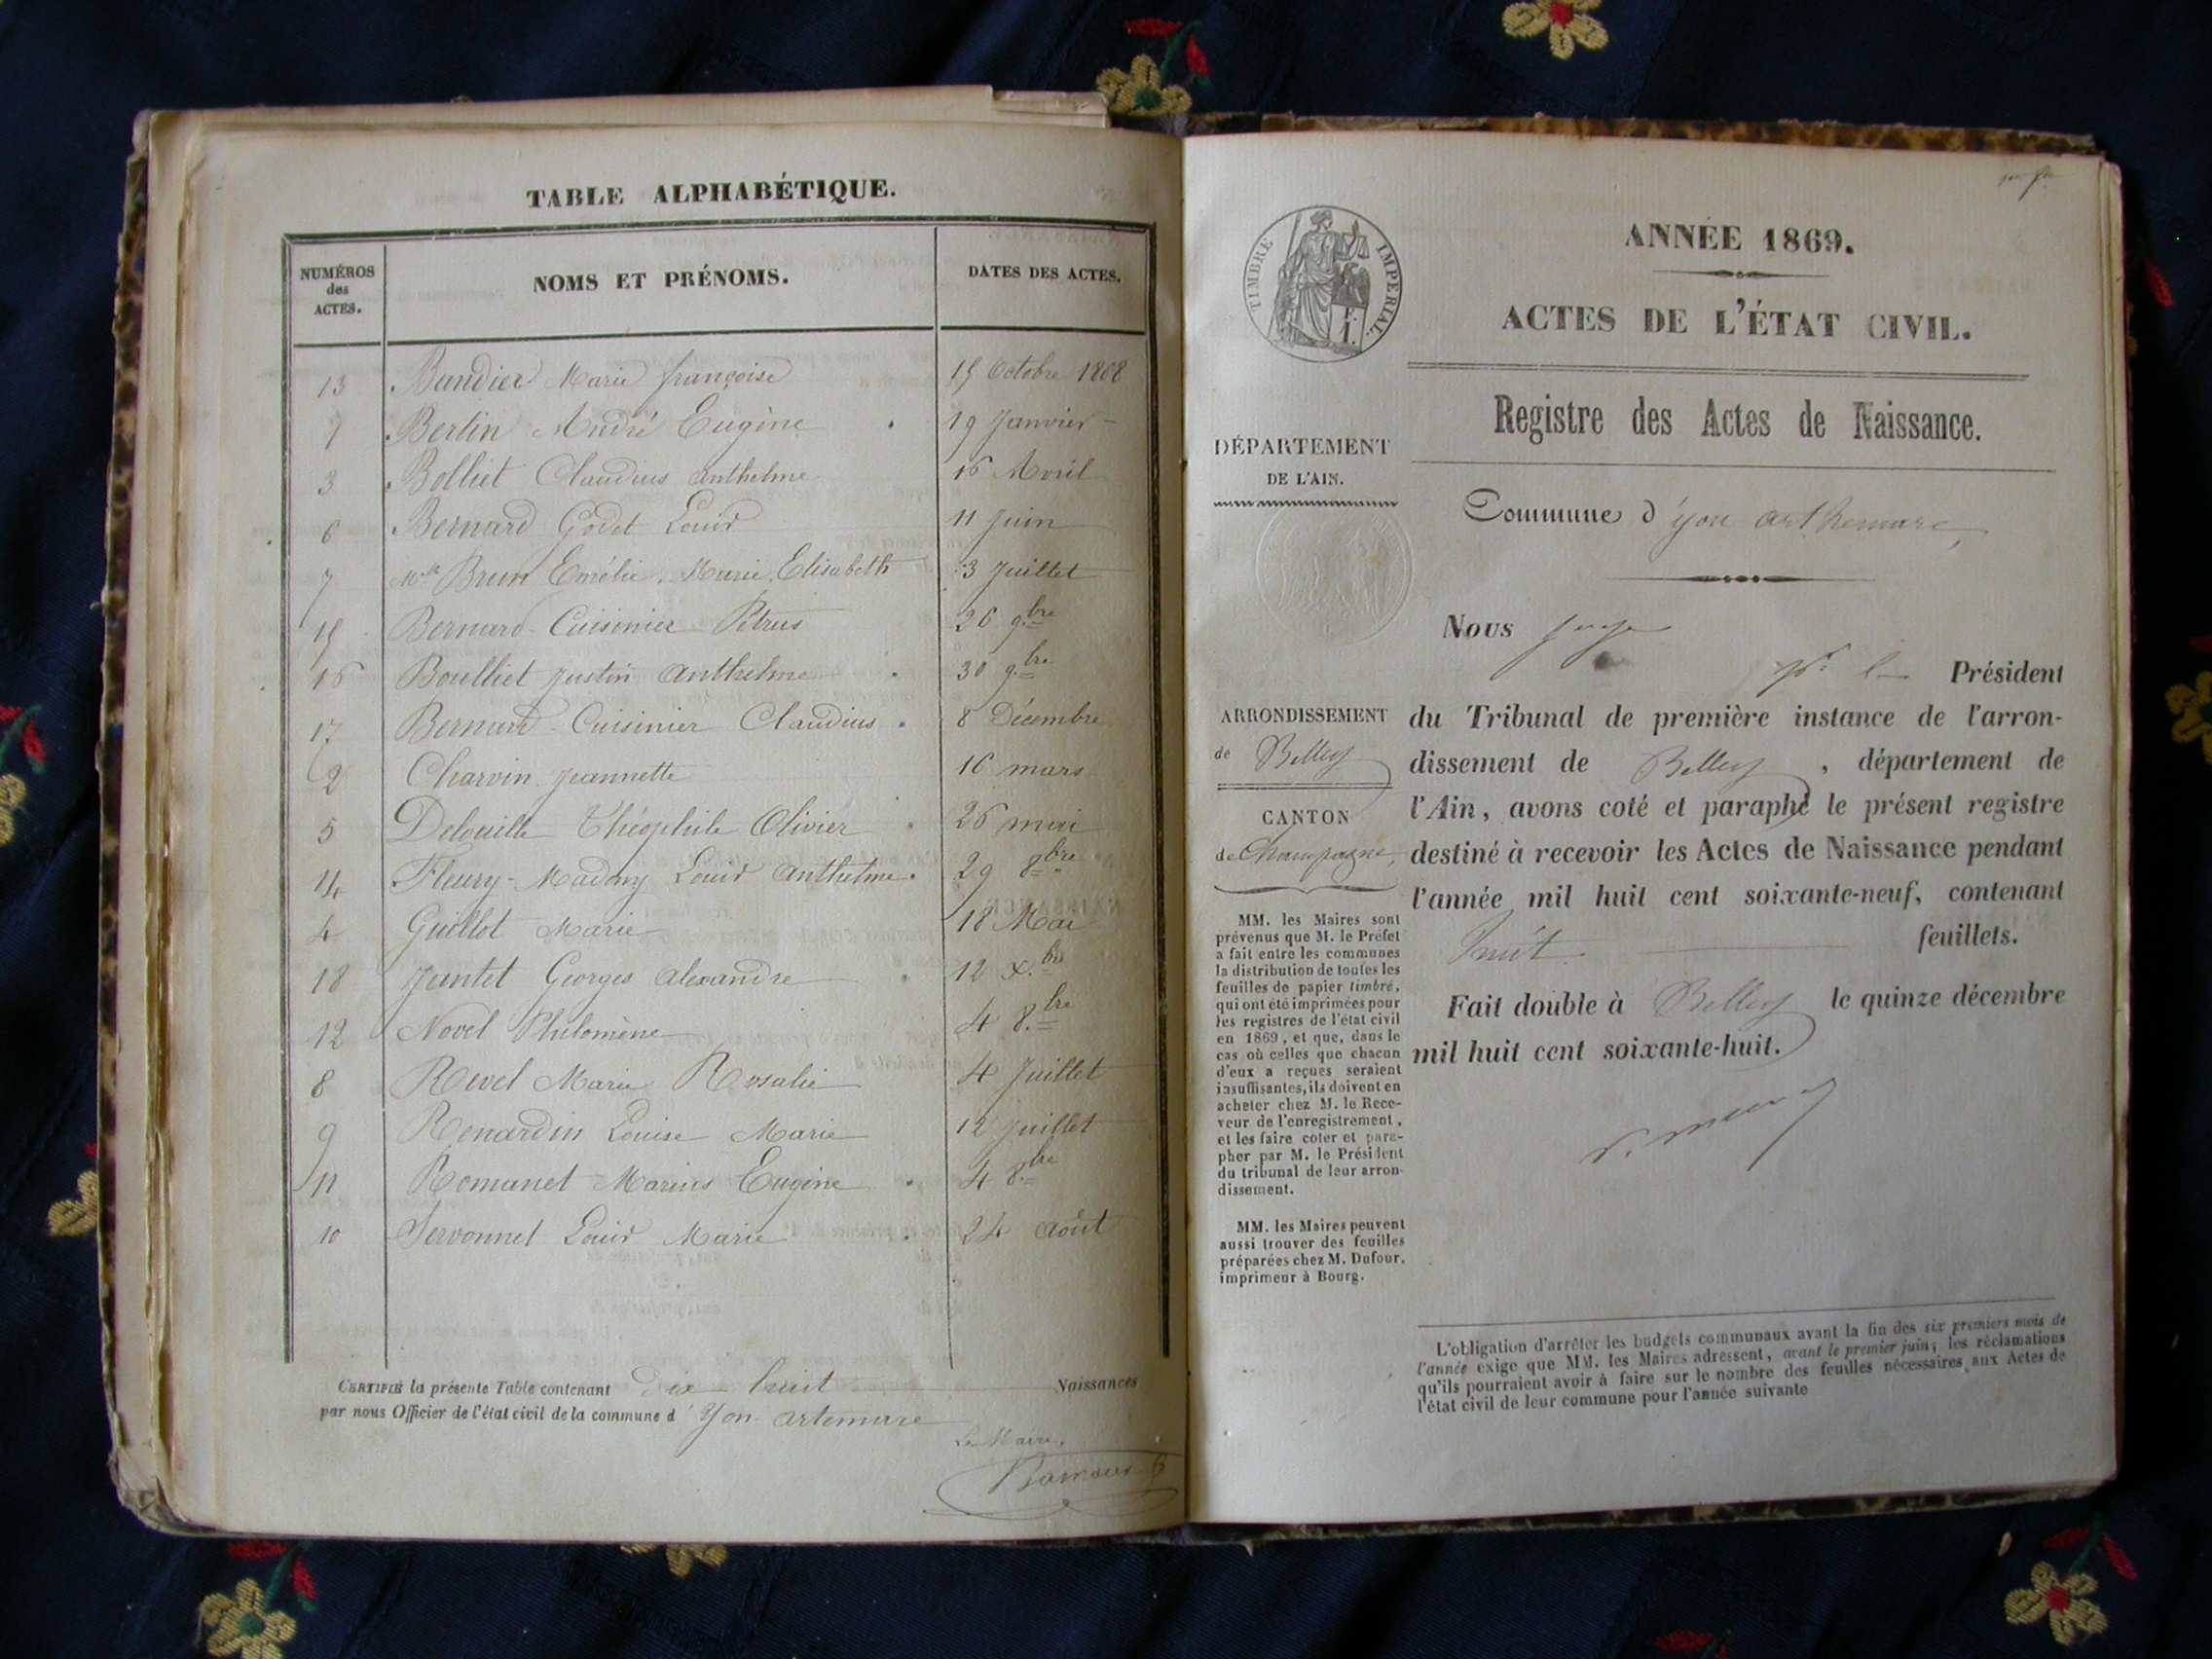 TABLE ALPHABÉTIQUE.
NUMÉROS des ACTES. NOMS ET PRÉNOMS. DATES DES ACTES.
13 Baudier Marie françoise 15 Octobre 1868
1 Bertin André Eugène 19 Janvier
3 Bolliet Claudius Anthelme 16 Avril
6 Bernard Godet Louis 11 Juin
7 Brun Emélie Marie Elisabeth 3 Juillet
15 Bernard-Cuisinier Pétrus 26 9.bre
16 Boulliet Justin Anthelme 30 9.bre
17 Bernard-Cuisinier Claudius 8 Décembre
2 Charvin Jeannette 16 mars
5 Delouille Théophile Olivier 26 mai
14 Fleury-Madony Louis Anthelme 29 8.bre
4 Guillot Marie 18 Mai
18 Jantet Georges Alexandre 12 X.bre
12 Novel Philomène 4 8.bre
8 Revel Marie Rosalie 4 Juillet
9 Renardin Louise Marie 12 Juillet
11 Romanet Marius Eugène 4 8.bre
10 Servonnet Louis Marie 24 Août
CERTIFIÉ la présente Table contenant Dix huit Naissances
par nous Officier de l'état civil de la commune d'Yon-artemare
Le Maire,
TIMBRE IMPÉRIAL.
ANNÉE 1869.
ACTES DE L'ÉTAT CIVIL.
Registre des Actes de Naissance.
DÉPARTEMENT
DE L'AIN.
Commune d'yon arthemare
ARRONDISSEMENT
de Belley
CANTON
de Champagne
MM. les Maires sont
prévenus que M. le Préfet
a fait entre les communes
la distribution de toutes les
feuilles de papier timbré,
qui ont été imprimées pour
les registres de l'état civil
en 1869, et que, dans le
cas où celles que chacun
d'eux a reçues seraient
insuffisantes, ils doivent en
acheter chez M. le Rece-
veur de l'enregistrement,
et les faire coter et para-
pher par M. le Président
du tribunal de leur arron-
dissement.
MM. les Maires peuvent
aussi trouver des feuilles
préparées chez M. Dufour,
imprimeur à Bourg.
Nous juge
Président
du Tribunal de première instance de l'arron-
dissement de Belley, département de
l'Ain, avons coté et paraphé le présent registre
destiné à recevoir les Actes de Naissance pendant
l'année mil huit cent soixante-neuf, contenant
huit feuillets.
Fait double à Belley le quinze décembre
mil huit cent soixante-huit.
L'obligation d'arrêter les budgets communaux avant la fin des six premiers mois de
l'année exige que MM. les Maires adressent, avant le premier juin, les réclamations
qu'ils pourraient avoir à faire sur le nombre des feuilles nécessaires aux Actes de
l'état civil de leur commune pour l'année suivante